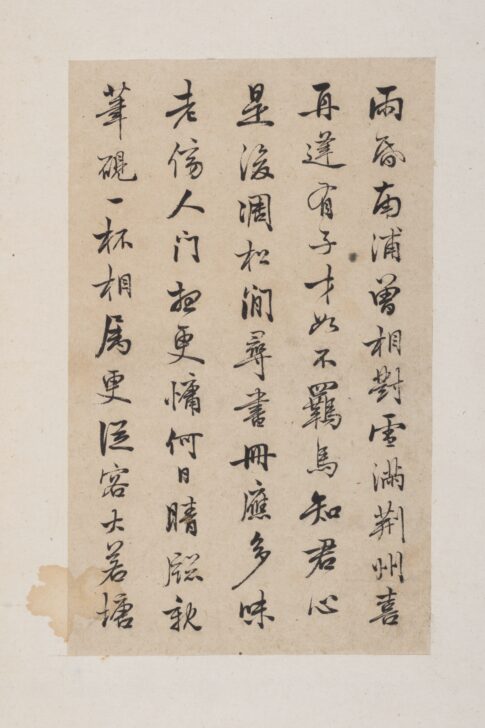 雨昏南浦曾相對雪滿荊州喜
再逢有子才如不羈馬知君心
是後凋松閒尋書冊應多味
老傍人門更慵何日晴牕親
筆硯一杯相屬更從容大若塘